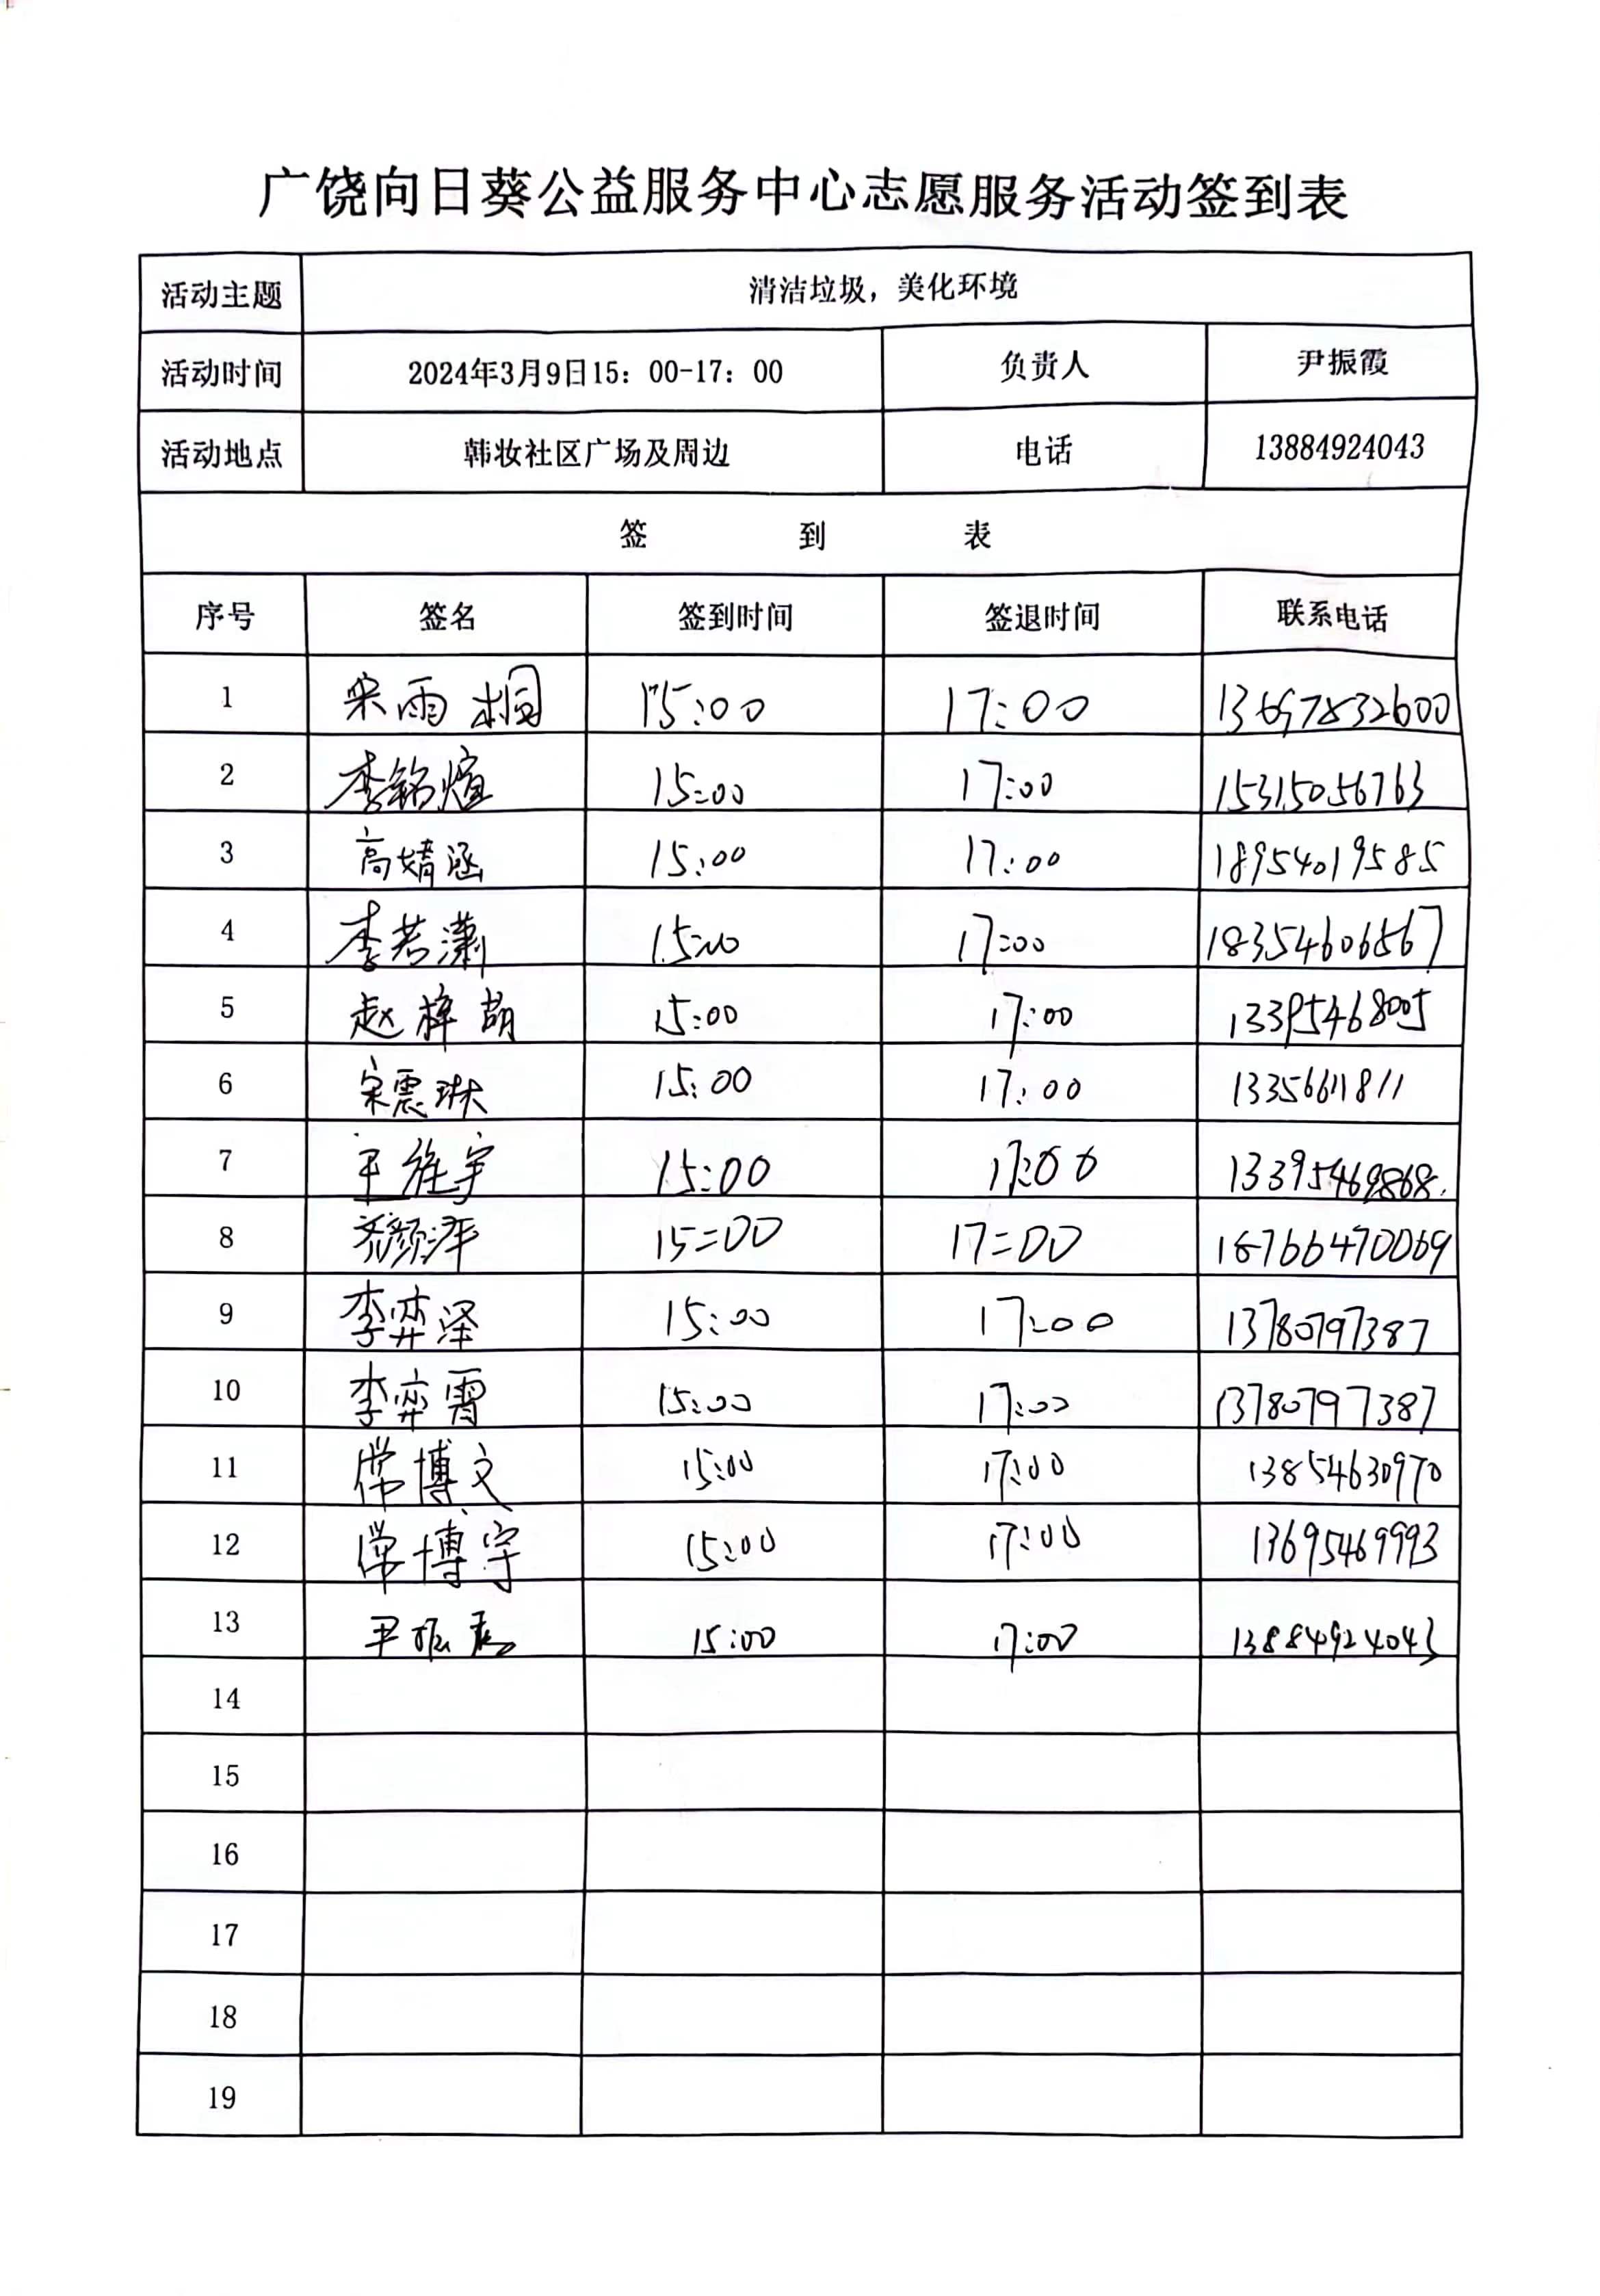 广饶向日葵公益服务中心志愿服务活动签到表
活动主题 清洁垃圾，美化环境
活动时间 2024年3月9日15：00-17：00 负责人 尹振霞
活动地点 韩妆社区广场及周边 电话 13884924043
签 到 表
序号 签名 签到时间 签退时间 联系电话
1 宋雨桐 15:00 17:00
2 李铭煊 15:00 17:00 15315056763
3 高婧涵 15:00 17:00 18954019585
4 李若潇 15:00 17:00 18354606567
5 赵梓萌 15:00 17:00 13395468005
6 宋震琳 15:00 17:00 13356611811
7 15:00 17:00
8 齐颜泽 15:00 17:00
9 李弈泽 15:00 17:00 13780797387
10 李弈霄 15:00 17:00 13780797387
11 常博文 15:00 17:00 13854630970
12 常博宇 15:00 17:00 13695469993
13 尹振霞 15:00 17:00 13884924043
14
15
16
17
18
19